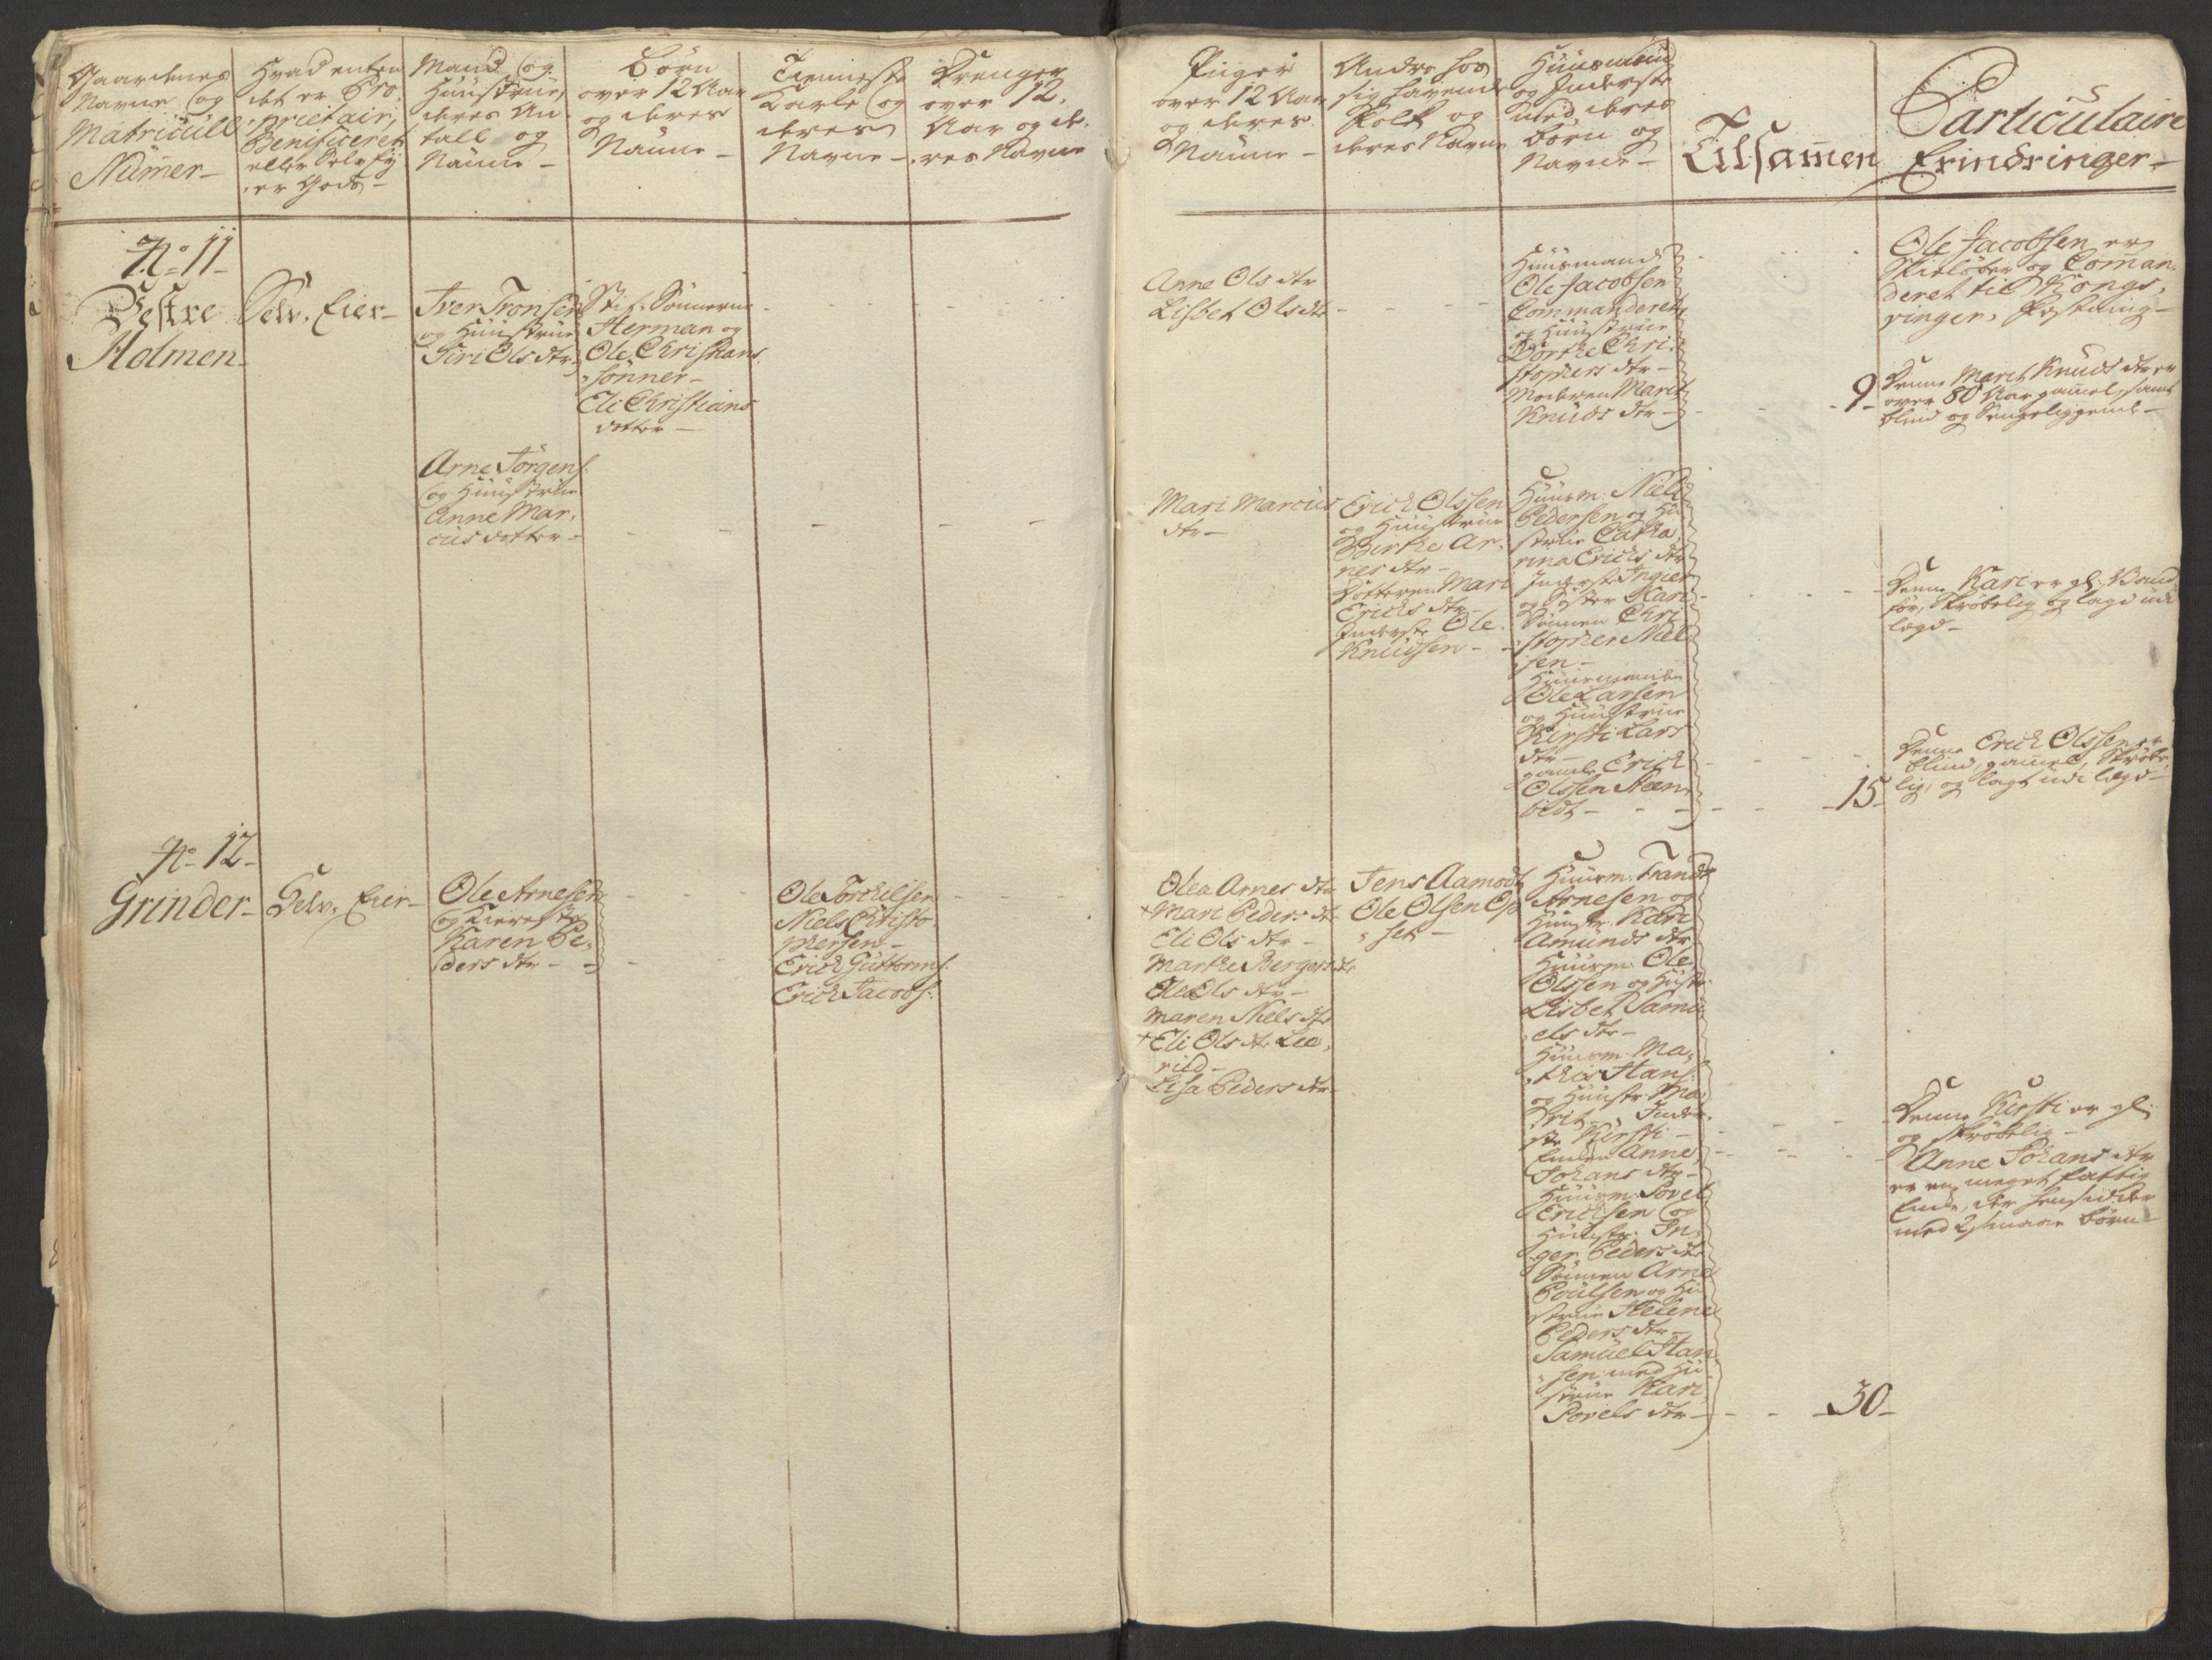 Gaardenes
Navne og
Matricull
Numer-
Hvad enten
det er Pro-
prietair,
Benificeret
eller Selv Ej-
er Gods-
Mand og
Hustrue,
deres An-
tall og
Naune-
Børn
over 12 Aar
og deres
Naune-
Tienneste
Karle og
deres
Navne-
Drenger
over 12.
Aar og de-
res Navne
Piiger
over 12 Aar
og deres
Naune-
Andre hos
sig havende
Folk og
deres Navne
Huusmænd
og Inderste
med deres
børn og
Navne-
Tilsamen
Particulaire
Erindringer-
No 11-
Vestre
Holmen-
Selv. Eier-
Iver Tronsen
og Huustrue
Siri Ols dtr
Stif. Sønnerne
Herman og
Ole Christians
sønner-
Eli Christians
datter-
Anne Ols dtr
Lisbet Ols dtr-
Huusmand
Ole Jacobsen
Commanderet,
og Huustrue
Dorthe Chri-
stophers dtr-
Moderen Marit
Knuds dtr-
9-
Ole Jacobsen er
Skieløber og Coman-
deret til Kongs-
vinger Festning-
Denne Marit Knuds dtr er
over 80 Aar gamel, samt
blind og Sengeliggende-
Arne Jörgens:
og Huustrue
Anne Mar-
cus datter-
Mari Marcus
dtr-
Erick Olssen
og Huustrue
Birthe Ar-
nes dtr-
Datteren Mari
Ericks dtr-
Inderste Ole
Knudsen-
Huusm: Niels
Pedersen og Hu-
strue Catha-
rina Ericks dtr
Inderste Ingier
og Søster Kari
Sønnen Chri-
stopher Niel-
sen-
Huusmanden
Ole Larsen
og Huustrue
Kirsti Lars
dtr-
gamle Erick
Olssen Steen-
bedt-
15-
Denne Kari er gl: Vand-
før, skrøbelig og lagd udi
lægd-
Denne Erick Olssen er
blind, gamel, skrøbe-
lig, og lagt udi lægd-
No 12-
Grinder-
Selv. Eier-
Ole Arnesen
og Kiereste
Karen Pe-
ders dtr-
Ole Torkelsen
Niels Christo-
phersen-
Erick Guttorms:
Erick Jacobs:
Olea Arnes dtr
+Mari Peders dtr
Eli Ols dtr-
Marthe Bergers dtr
Olea Ols dtr-
Maren Niels dtr
+Eli Ols dtr Lee-
rild-
Lisa Peders dtr-
Jens Aamodt
Ole Olsen Op-
set-
Huusm: Trand
Arnesen og
Huustr: Kari
Amunds dtr
Huusm: Ole
Olssen og Hustr:
Lisbet Samu-
els dtr-
Huusm: Ma-
this Hans:
og Huustr: Ma-
rit, Inder-
ste Kirsti-
Enken Anne
Johans dtr-
Huusm: Povel
Ericksen og
Huustr: In-
ger Peders dtr
Sønnen Arne
Poulsen og Hu-
strue Helene
Peders dtr-
Samuel Han-
sen med Hu-
strue Kari
Povels dtr-
30-
Denne Kirsti er gl:
og skrøbelig-
Anne Johans dtr
er en meget fattig
Enke, der hensidder
med 2 smaae børn-